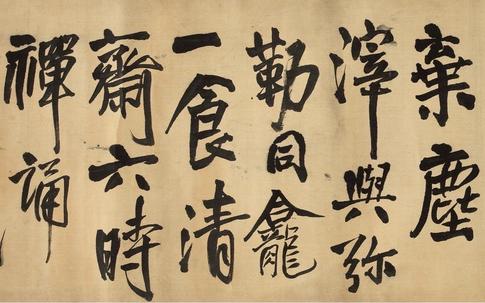 棄塵
滓與弥
勒同龕
一食清
齋六時
禪誦